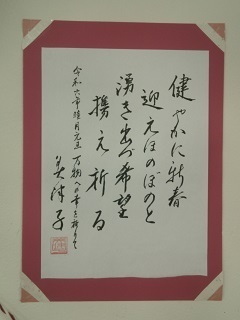 健やかに新春
迎えほのぼのと
湧き出づ希望
携え祈る
令和六年睦月元旦 万物への幸を祈りて
美津子